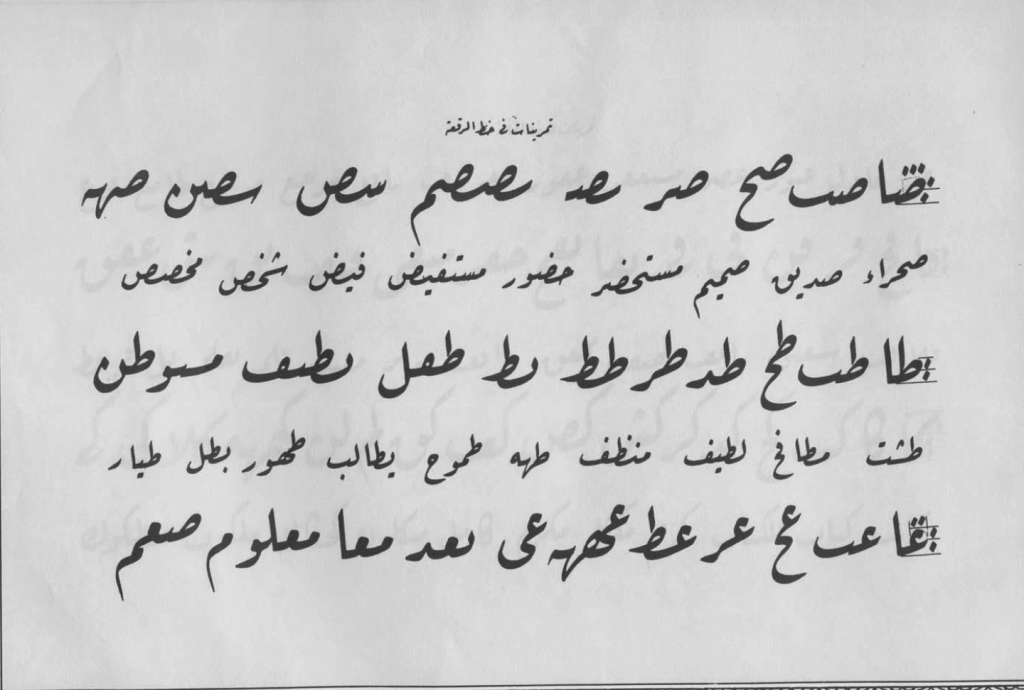 تمرينات في خط الرقعة
صا صب صح صر صد
صحراء صديق صميم مستحضر حضور مستفيض فيض شخص مخصص
طا طب طح طد طر طط بط طفل
طشت مطافئ لطيف منظف طهه طموح يطالب طهور بطل طيار
عا عب عح عر عط عهه عى بعد معا معلوم صعم